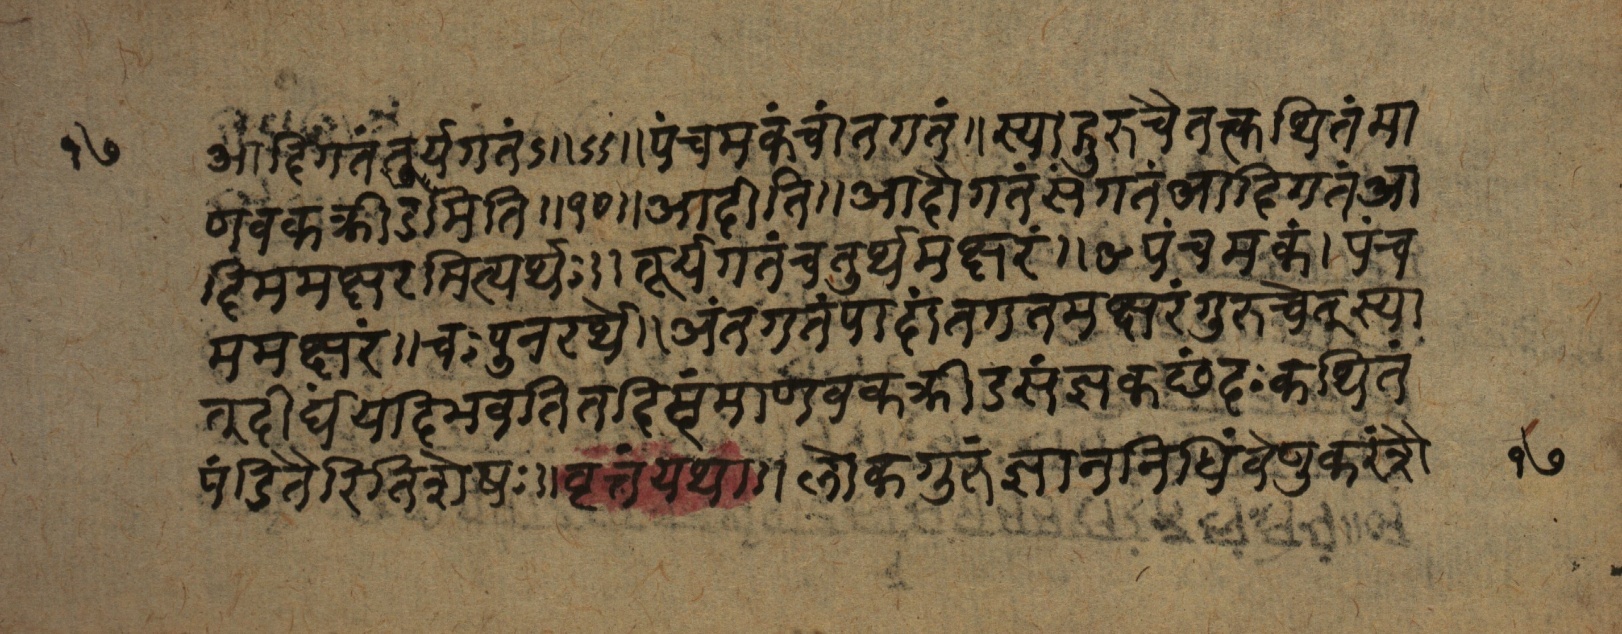 १७
आदिगतंतुर्यगतंऽ॥ऽऽ॥पंचमकंचांतगतं॥स्याद्गुरुचैतत्कथितंमा
णवकक्रीडमिति॥१०॥आदीति॥आदौगतंसंगतंआदिगतंआ
दिममक्षरमित्यर्थः॥तूर्यगतंचतुर्थमक्षरं॥पंचमकं।पंच
ममक्षरं॥चःपुनरर्थे॥अंतगतंपादांतगतमक्षरंगुरुचेत्स्या
त्दीर्घंयदिभवतितदिदंमाणवकक्रीडसंज्ञकछंदःकथितं
पंडितैरितिशेषः॥वृत्तंयथा॥लोकगुरुंज्ञाननिधिंवेणुकरंशै
१७